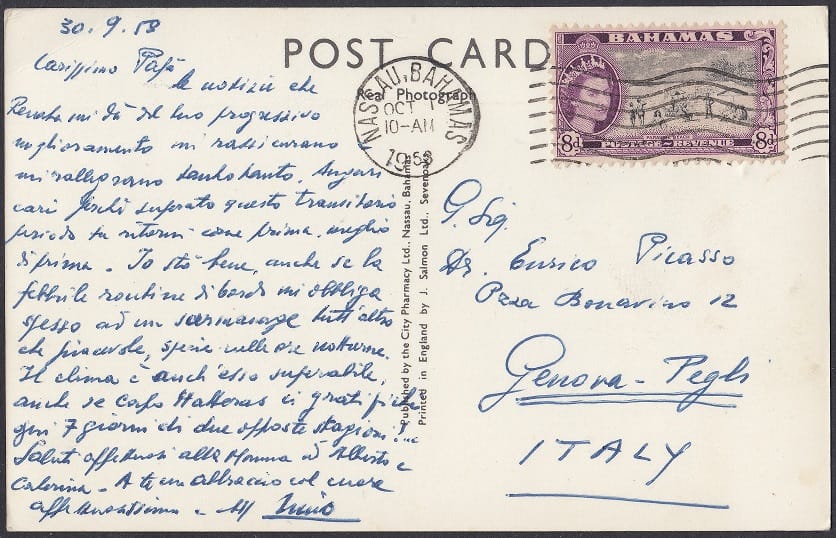 30.9.58
Carissimo Papà
le notizie che
Renata mi dà del tuo progressivo
miglioramento mi rassicurano
mi rallegrano tanto tanto. Auguri
cari perchè superato questo transitorio
periodo tu ritorni come prima, meglio
di prima. Io stò bene, anche se la
febbrile routine di bordo mi obbliga
spesso ad un tutt'altro
che piacevole, specie nelle ore notturne.
Il clima è anch'esso superabile,
anche se Capo Hatteras ci gratifichi
ogni 7 giorni di due opposte stagioni!...
Saluti affettuosi alla Mamma ad Alberto e
Caterina. A te un abbraccio col cuore
affettuosissimo.
POST CARD
Real Photograph
NASSAU, BAHAMAS
OCT 1
10-AM
1958
BAHAMAS
8d 8d
POSTAGE & REVENUE
Published by the City Pharmacy Ltd., Nassau, Bahamas
Printed in England by J. Salmon Ltd., Sevenoaks
G. Sig.
Dr. Enrico Picasso
Pzza Bonavino 12
Genova - Pegli
ITALY